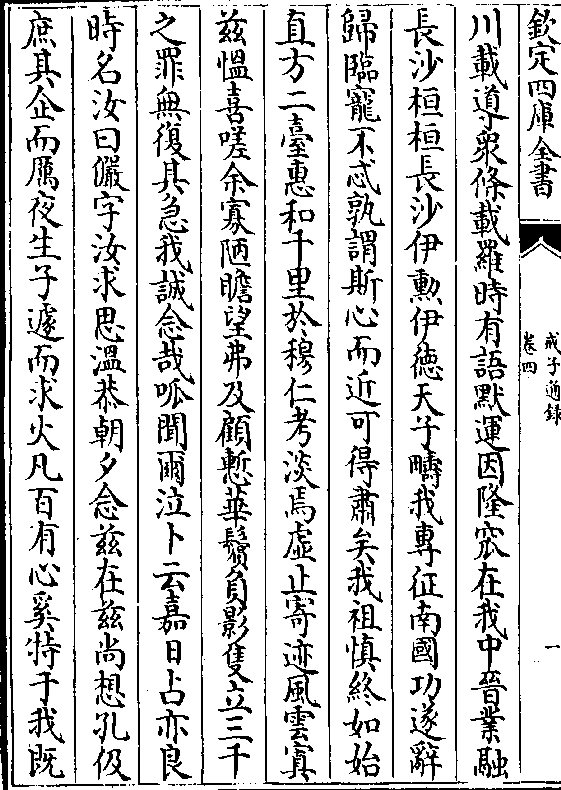 欽定四庫全書
戒子通録
卷四
一
川載導衆條載羅時有語默運因隆窊在我中晉業融
長沙桓桓長沙伊勲伊德天子疇我專征南國功遂辭
歸臨寵不忒孰謂斯心而近可得肅矣我祖慎終如始
直方二臺惠和千里於穆仁考淡焉虛止寄迹風雲寘
兹愠喜嗟余寡陋瞻望弗及顧慙華鬢負影隻立三千
之罪無復其急我誠念哉呱聞爾泣卜云嘉日占亦良
時名汝曰儼字汝求思溫恭朝夕念兹在兹尚想孔伋
庶其企而厲夜生子遽而求火凡百有心奚特于我既